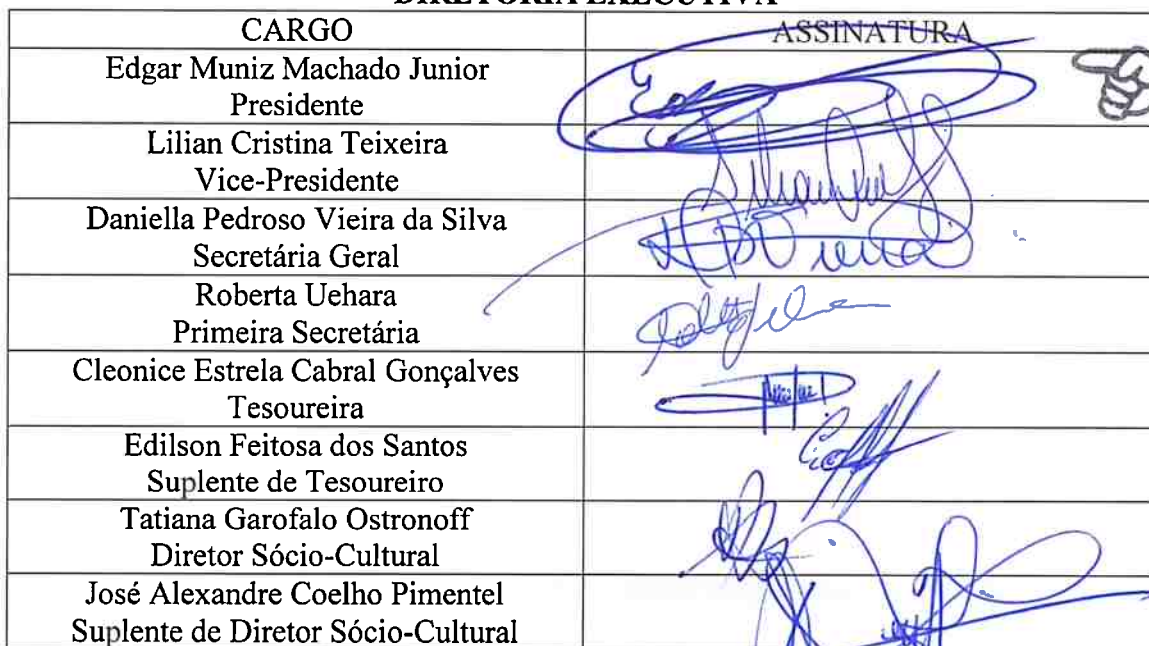 DIRETORIA EXECUTIVA
CARGO
ASSINATURA
Edgar Muniz Machado Junior
Presidente
Lilian Cristina Teixeira
Vice-Presidente
Daniella Pedroso Vieira da Silva
Secretária Geral
Roberta Uehara
Primeira Secretária
Cleonice Estrela Cabral Gonçalves
Tesoureira
Edilson Feitosa dos Santos
Suplente de Tesoureiro
Tatiana Garofalo Ostronoff
Diretor Sócio-Cultural
José Alexandre Coelho Pimentel
Suplente de Diretor Sócio-Cultural